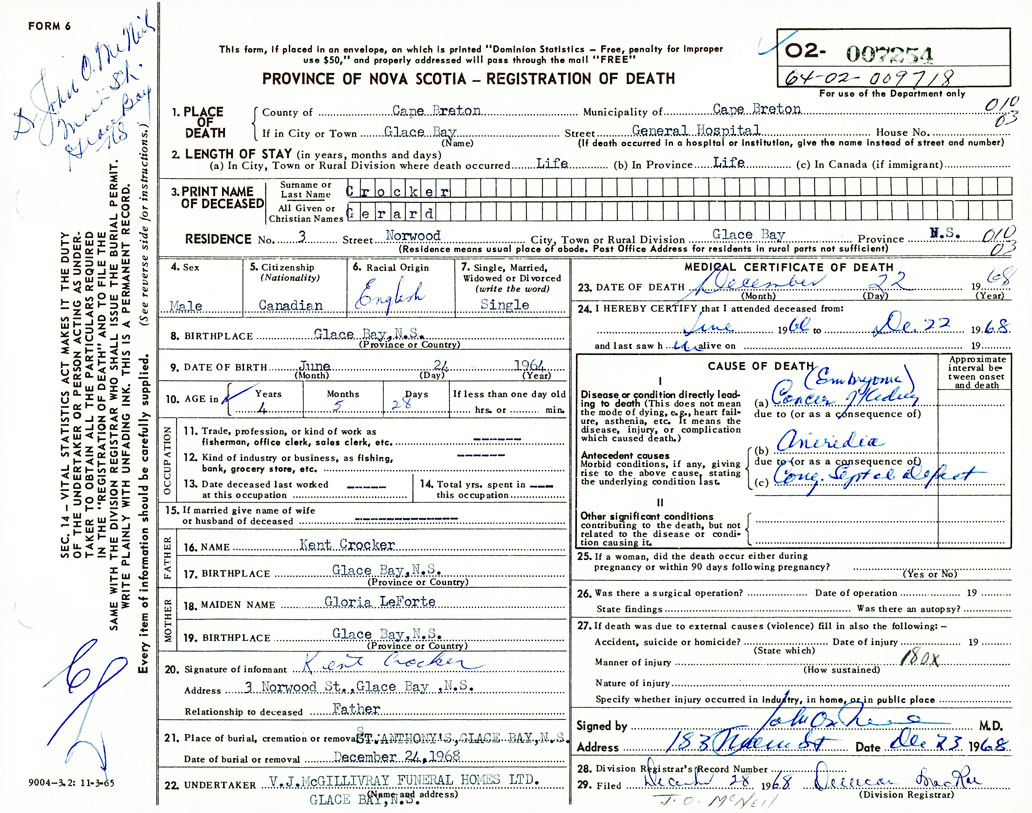 FORM 6
Dr. John O. McNeil
Main St.
Glace Bay
NS
This form, if placed in an envelope, on which is printed "Dominion Statistics – Free, penalty for improper
use $50," and properly addressed will pass through the mail "FREE"
PROVINCE OF NOVA SCOTIA – REGISTRATION OF DEATH
02- 007254
64-02-009718
For use of the Department only
SEC. 14 – VITAL STATISTICS ACT MAKES IT THE DUTY
OF THE UNDERTAKER OR PERSON ACTING AS UNDER-
TAKER TO OBTAIN ALL THE PARTICULARS REQUIRED
IN THE "REGISTRATION OF DEATH" AND TO FILE THE
SAME WITH THE DIVISION REGISTRAR WHO SHALL ISSUE THE BURIAL PERMIT.
WRITE PLAINLY WITH UNFADING INK. THIS IS A PERMANENT RECORD.
Every item of information should be carefully supplied. (See reverse side for instructions.)
1. PLACE OF DEATH County of Cape Breton Municipality of Cape Breton 010
If in City or Town Glace Bay Street General Hospital House No. 03
(Name) (If death occurred in a hospital or institution, give the name instead of street and number)
2. LENGTH OF STAY (in years, months and days)
(a) In City, Town or Rural Division where death occurred Life (b) In Province Life (c) In Canada (if immigrant)
3. PRINT NAME OF DECEASED Surname or Last Name Crocker
All Given or Christian Names Gerard
RESIDENCE No. 3 Street Norwood City, Town or Rural Division Glace Bay Province N.S. 010
(Residence means usual place of abode. Post Office Address for residents in rural parts not sufficient) 03
4. Sex
Male
5. Citizenship
(Nationality)
Canadian
6. Racial Origin
English
7. Single, Married,
Widowed or Divorced
(write the word)
Single
8. BIRTHPLACE Glace Bay,N.S.
(Province or Country)
9. DATE OF BIRTH June 24 1964
(Month) (Day) (Year)
10. AGE in Years Months Days If less than one day old
4 5 28 hrs. or min.
OCCUPATION
11. Trade, profession, or kind of work as
fisherman, office clerk, sales clerk, etc. ------
12. Kind of industry or business, as fishing,
bank, grocery store, etc. ------
13. Date deceased last worked
at this occupation -----
14. Total yrs. spent in ---
this occupation
15. If married give name of wife
or husband of deceased -------------
FATHER
16. NAME Kent Crocker
17. BIRTHPLACE Glace Bay,N.S.
(Province or Country)
MOTHER
18. MAIDEN NAME Gloria LeForte
19. BIRTHPLACE Glace Bay,N.S.
(Province or Country)
20. Signature of informant Kent Crocker
Address 3 Norwood St.,Glace Bay ,N.S.
Relationship to deceased Father
21. Place of burial, cremation or removal ST.ANTHONY'S,GLACE BAY,N.S.
Date of burial or removal December 24,1968
22. UNDERTAKER V.J.McGILLIVRAY FUNERAL HOMES LTD.
(Name and address)
GLACE BAY,N.S.
MEDICAL CERTIFICATE OF DEATH
23. DATE OF DEATH December 22 1968
(Month) (Day) (Year)
24. I HEREBY CERTIFY that I attended deceased from:
June 19 to Dec. 22 1968
and last saw h alive on 19
CAUSE OF DEATH
Approximate
interval be-
tween onset
and death
I
Disease or condition directly lead-
ing to death (This does not mean
the mode of dying, e.g., heart fail-
ure, asthenia, etc. It means the
disease, injury, or complication
which caused death.)
(Embryoma)
(a) Cancer Kidney
due to (or as a consequence of)
Antecedent causes
Morbid conditions, if any, giving
rise to the above cause, stating
the underlying condition last.
(b) Aniridia
due to (or as a consequence of)
(c) Cong. Septal defect
II
Other significant conditions
contributing to the death, but not
related to the disease or condi-
tion causing it.
25. If a woman, did the death occur either during
pregnancy or within 90 days following pregnancy?
(Yes or No)
26. Was there a surgical operation? Date of operation 19
State findings Was there an autopsy?
27. If death was due to external causes (violence) fill in also the following: –
Accident, suicide or homicide? Date of injury 19
(State which)
Manner of injury 180X
(How sustained)
Nature of injury
Specify whether injury occurred in industry, in home, or in public place
Signed by John O. McNeil M.D.
Address 183 Main St Date Dec 23 1968
28. Division Registrar's Record Number
29. Filed December 28 1968 Duncan MacRae
(Division Registrar)
J. O. McNEIL
9004-3.2: 11-3-65